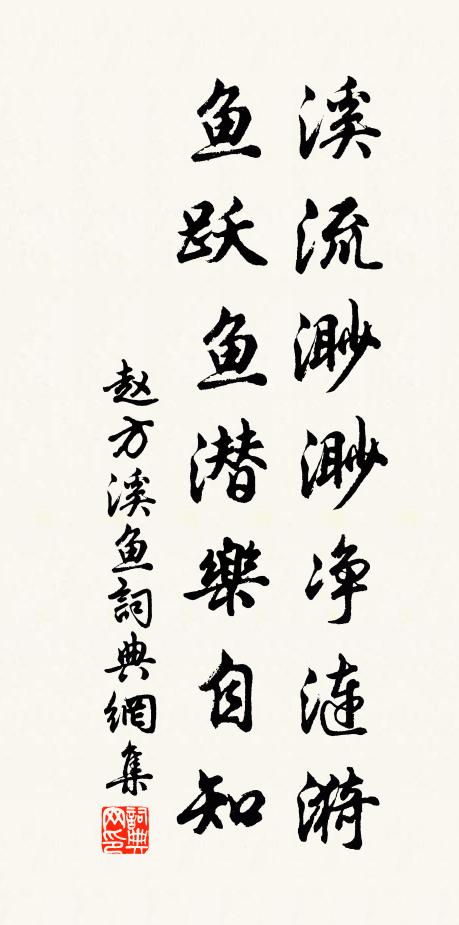 溪流渺渺净涟漪
鱼跃鱼潜樂自知
赵方溪鱼詞典網集
詞典网印